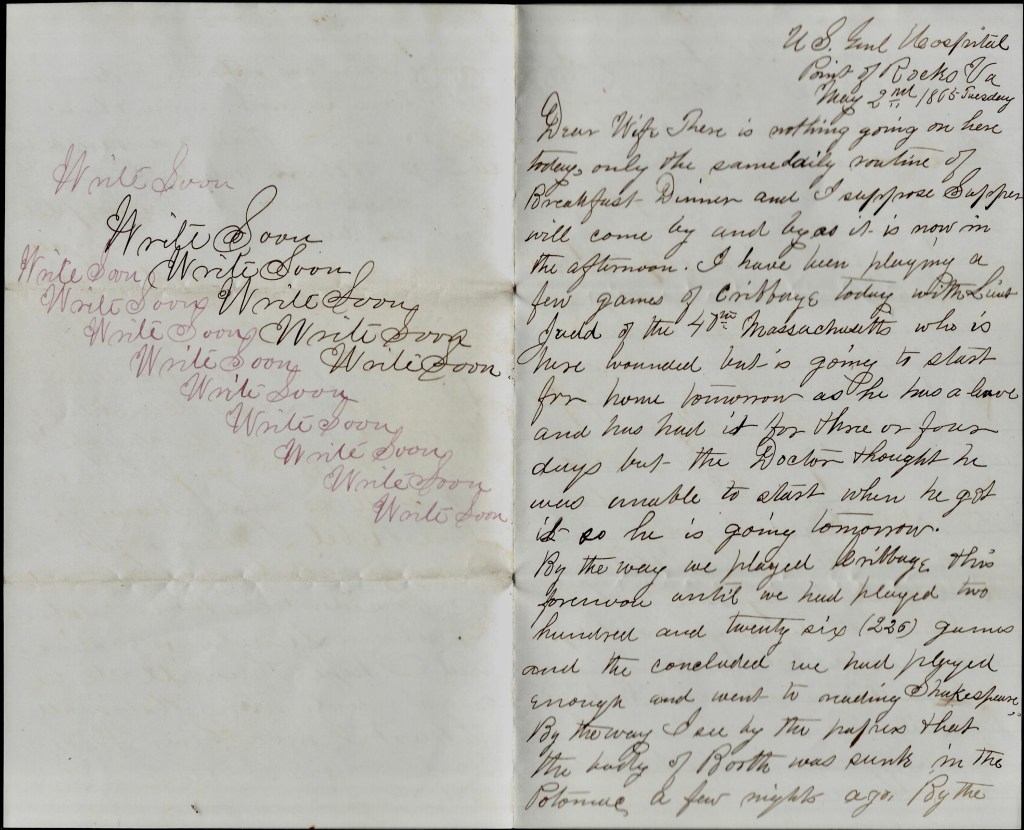 Write Soon
Write Soon
Write Soon Write Soon
Write Soon Write Soon
Write Soon Write Soon
Write Soon Write Soon
Write Soon
Write Soon
Write Soon
Write Soon
Write Soon
U S. Genl Hospital
Point of Rocks Va
May 2nd 1865 Tuesday
Dear Wife There is nothing going on here
today, only the same daily routine of
Breakfast Dinner and I suppose Supper
will come by and by as it is now in
the afternoon. I have been playing a
few games of Cribbage today with Lieut
Judd of the Massachusetts who is
here wounded but is going to start
for home tomorrow as he has a leave
and has had it for three or four
days but the Doctor thought he
was unable to start when he got
it so he is going tomorrow.
By the way we played Cribbage this
forenoon until we had played two
hundred and twenty six (226) games
and the concluded we had played
enough and went to reading Shakespeare.
By the way I see by the papers that
the body of Booth was sunk in the
Potomac a few nights ago. By the